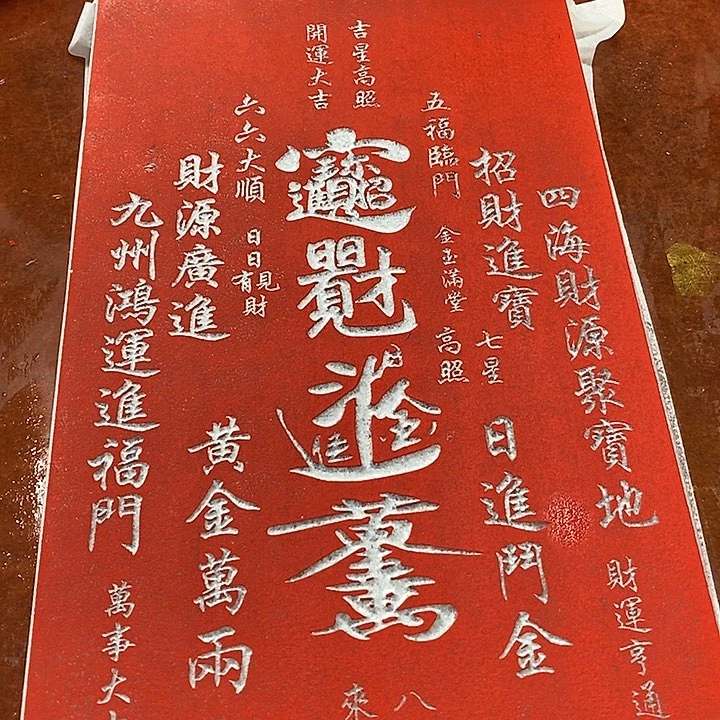 吉星高照
開運大吉
五福臨門
六六大順
四海財源聚寶地
招財進寶
金玉滿堂
七星
高照
日日有見財
財源廣進
九州鴻運進福門
日進鬥金
黃金萬兩
財運亨通
萬事大
八
來